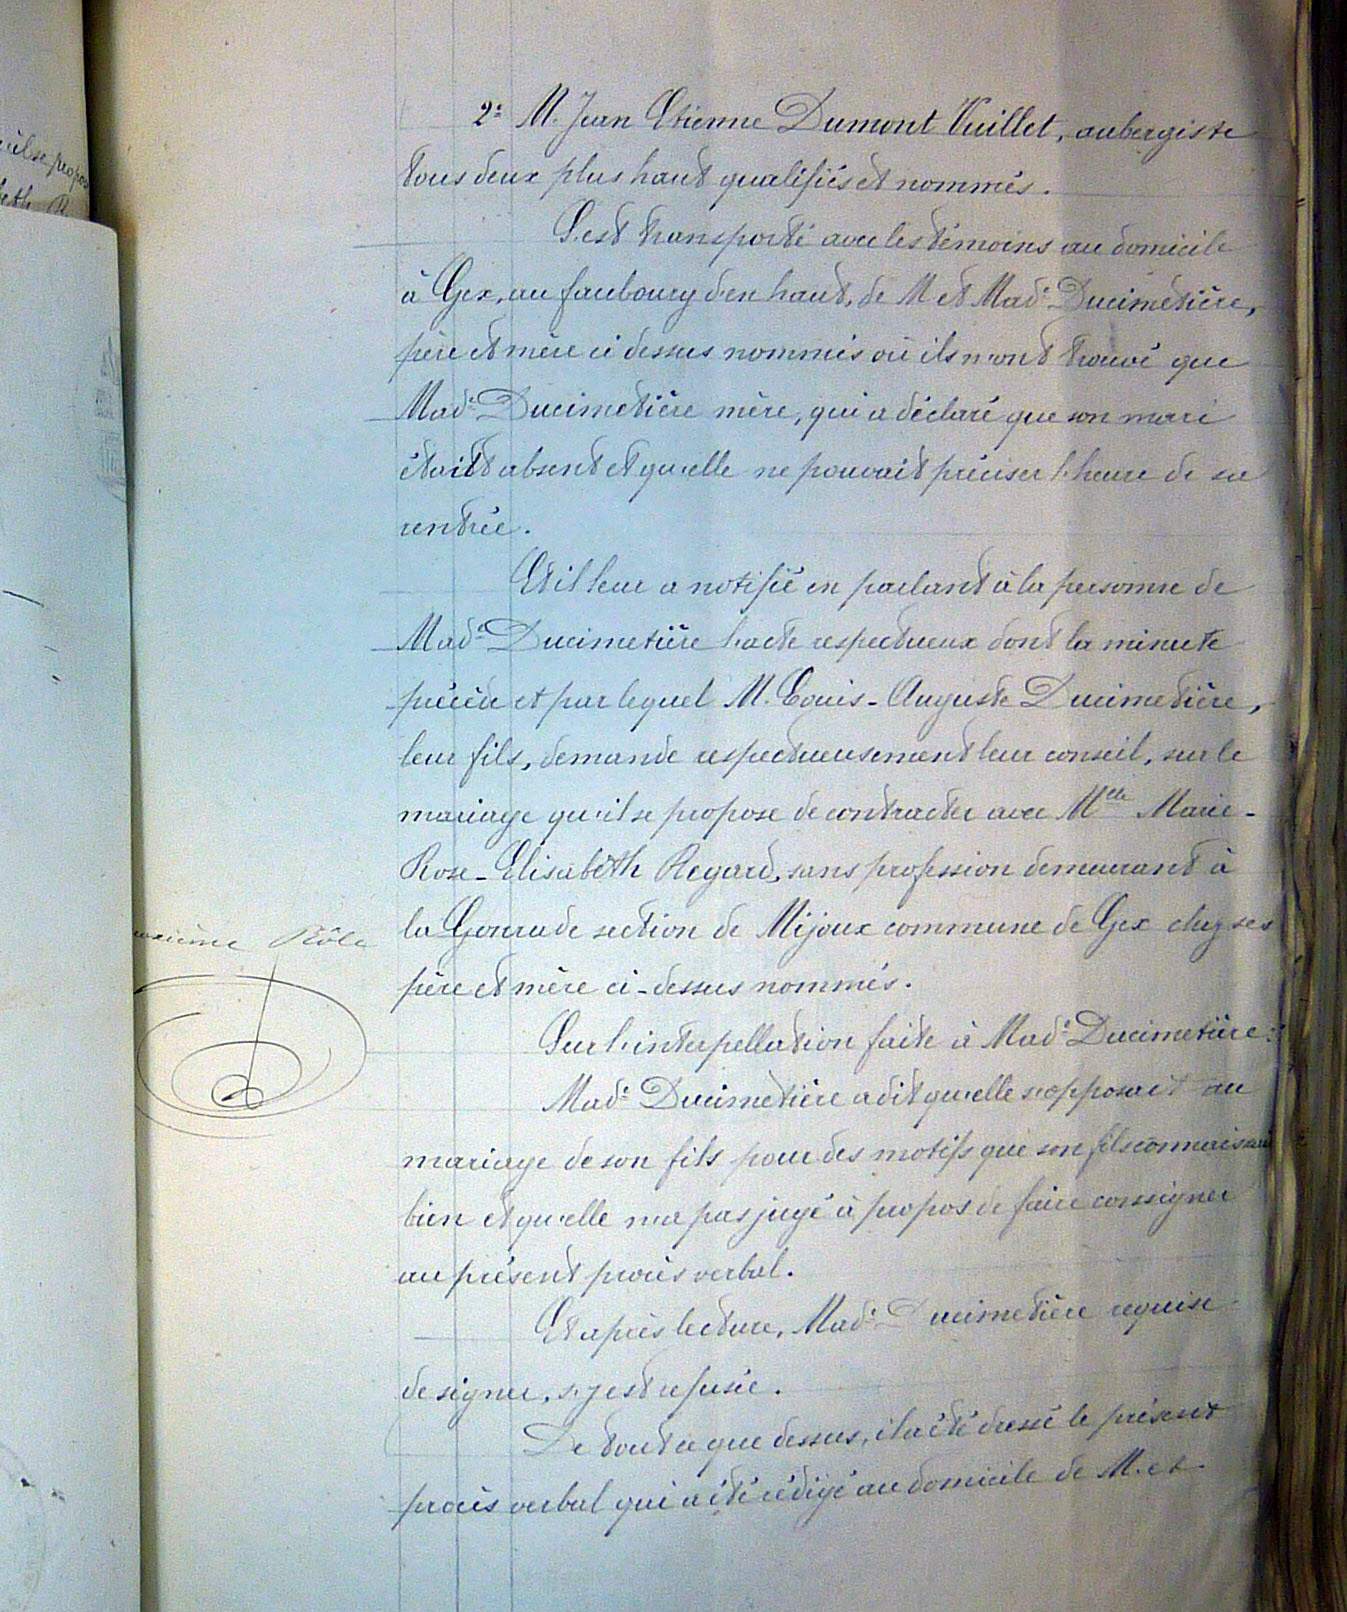 2° M. Jean Etienne Dumont Vuillet, aubergiste
tous deux plus haut qualifiés et nommés.
S'est transporté avec les témoins au domicile
à Gex, au faubourg d'en haut, de M et Mad.e Ducimetière,
père et mère ci dessus nommés où ils n'ont trouvé que
Mad.e Ducimetière mère, qui a déclaré que son mari
était absent et qu'elle ne pouvait préciser l'heure de sa
rentrée.
Et il leur a notifié en parlant à la personne de
Mad.e Ducimetière l'acte respectueux dont la minute
précède et par lequel M. Louis-Auguste Ducimetière,
leur fils, demande respectueusement leur conseil, sur le
mariage qu'il se propose de contracter avec Melle Marie-
Rose-Elisabeth Regard, sans profession demeurant à
la section de Mijoux commune de Gex chez ses
père et mère ci-dessus nommés.
Rôle
Sur l'interpellation faite à Mad.e Ducimetière:
Mad.e Ducimetière a dit qu'elle s'opposait au
mariage de son fils pour des motifs que son fils connaissait
bien et qu'elle n'a pas jugé à propos de faire consigner
au présent procès verbal.
Et après lecture, Mad.e Ducimetière requise
de signer, s'y est refusée.
De tout ce que dessus, il a été dressé le présent
procès verbal qui a été rédigé au domicile de M. et
qu'il se propos
beth R